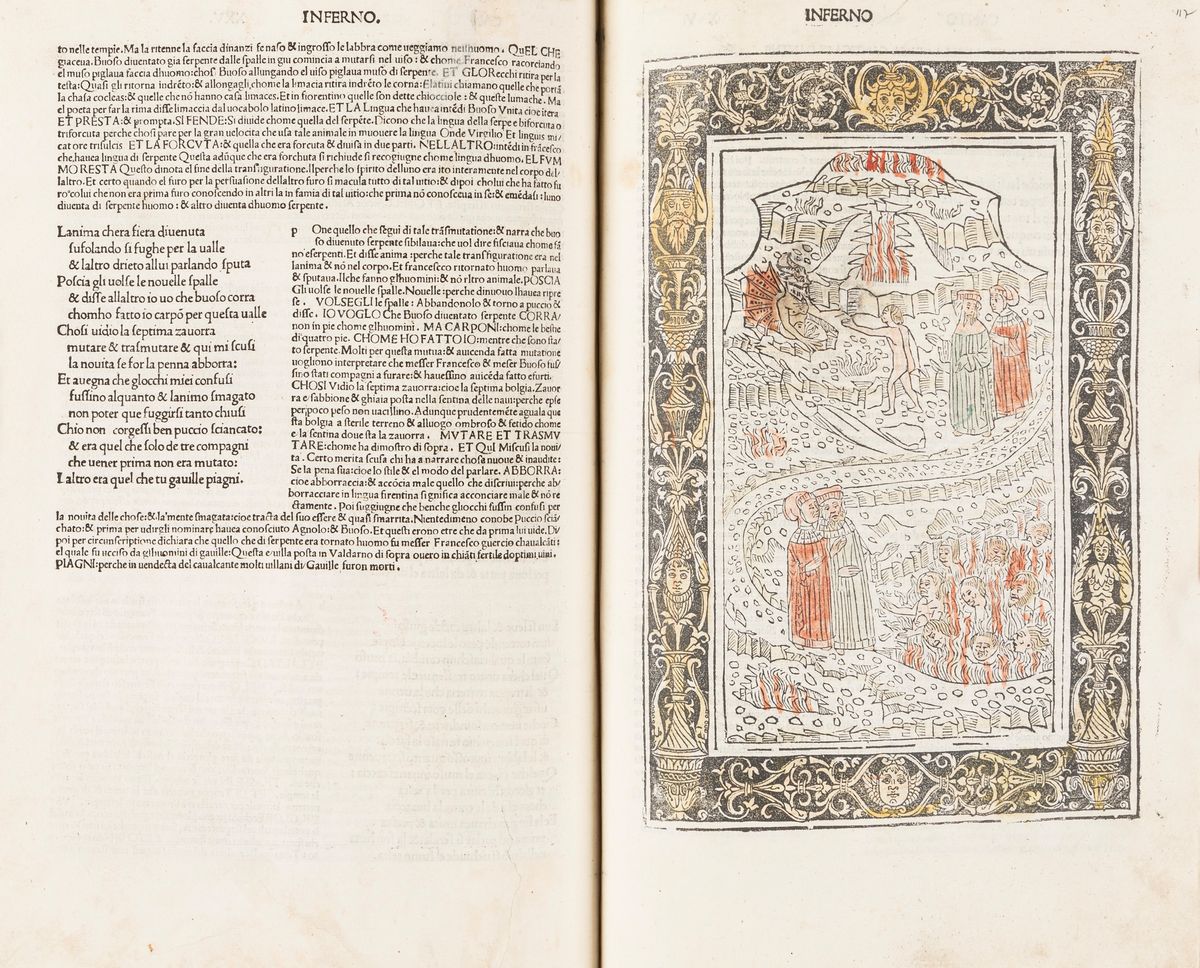 INFERNO.
to nelle tempie. Ma la ritenne la faccia dinanzi fe naso & ingrosso le labbra come ueggiamo nellhuomo. QuEL CHE
giaceua. Buoso diuentato gia serpente dalle spalle in giu comincia a mutarsi nel uiso: & chome Francesco racorciando
el muso piglaua faccia dhuomo: chosi Buoso allungando el uiso piglaua muso di serpente. ET GLORecchi ritira per la
testa: Quasi gli ritorna indrēto: & allongagli, chome la limacia ritira indrēto le corna: Elatini chiamano quelle che portā
la chasa cocleas: & quelle che nō hanno casa limaces. Et in fiorentino quelle son dette chiocciole: & queste lumache. Ma
el poeta per far la rima disse limaccia dal uocabolo latino limace. ET LA Lingua che hauea intēdi Buoso Vnita cioe itera
ET PRESTA: & prompta. SI FENDE: Si diuide chome quella del serpēte. Dicono che la lingua della serpe e biforcuta o
triforcuta perche chosi pare per la gran uelocita che usa tale animale in muouere la lingua Onde Virgilio Et linguis mi/
cat ore trisulcis ET LA FORCVTA: & quella che era forcuta & diuisa in due parti. NELLALTRO: intēdi in frācesco
che, hauea lingua di serpente Questa adūque che era forchuta si richiude si recogiugne chome lingua dhuomo. EL FVM
MO RESTA Questo dinota el fine della transfiguratione. Il perche lo spirito delluno era ito interamente nel corpo del/
laltro. Et certo quando el furo per la persuasione dellaltro furo si macula tutto di tal uitio: & dipoi cholui che ha fatto fu
ro colui che non era prima furo conoscendo in altri la infamia di tal uitio: che prima nō conosceua in se: & emēdasi: luno
diuenta di serpente huomo: & altro diuenta dhuomo serpente.
Lanima chera fiera diuenuta
sufolando si fughe per la ualle
& laltro drieto allui parlando sputa
Poscia gli uolse le nouelle spalle
& disse allaltro io uo che buoso corra
chomho fatto io carpō per questa ualle
Chosi uidio la septima zauorra
mutare & trasmutare & qui mi scusi
la nouita se for la penna abborra:
Et auegna che glocchi miei confusi
fussino alquanto & lanimo smagato
non poter que fuggirsi tanto chiusi
Chio non corgessi ben puccio sciancato:
& era quel che solo de tre compagni
che uener prima non era mutato:
Laltro era quel che tu gauille piagni.
P One quello che segui di tale trāsmutatione: & narra che buo
so diuenuto serpente sibilaua: che uol dire fisciaua chome fā
no eserpenti. Et disse anima: perche tale transfiguratione era nel
lanima & nō nel corpo. Et francesco ritornato huomo parlaua
& sputaua. Ilche fanno glhuomini: & nō altro animale. POSCIA
Gli uolse le nouelle spalle. Nouelle: perche dinuouo lhauea ripre
se. VOLSEGLI le spalle: Abbandonolo & torno a puccio &
disse. IO VOGLO Che Buoso diuentato serpente CORRA/
non in pie chome glhuomini. MA CARPONI: chome le bestie
di quatro pie. CHOME HO FATTO IO: mentre che sono sta/
to serpente. Molti per questa mutua: & auicenda fatta mutatione
uogliono interpretare che messer Francesco & meser Buoso fus/
sino stati compagni a furare: & hauessino auicēda fatto efurti.
CHOSI Vidio la septima zauorra: cioe la septima bolgia. Zauor
ra e sabbione & ghiaia posta nella sentina delle naui: perche epse
per poco peso non uacillino. Adunque prudentemēte aguala que
sta bolgia a sterile terreno & alluogo ombroso & fetido chome
e la sentina doue sta la zauorra. MVTARE ET TRASMV
TARE: chome ha dimostro di sopra. ET QuI Miscusi la noui/
ta. Certo merita scusa chi ha a narrare chosa nuoue & inaudite:
Se la pena sua: cioe lo stile & el modo del parlare. ABBORRA:
cioe abborraccia: & accōcia male quello che discriui: perche ab/
borracciare in lingua firentina significa acconciare male & nō re
ctamente. Poi suggiugne che benche gliocchi fussin confusi per
la nouita delle chose: & la mente smagata: cioe tracta del suo essere & quasi smarrita. Nientedimeno conobe Puccio sciā/
chato: & prima per udirgli nominare hauea conosciuto Agnolo: & Buoso. Et questi erono etre che da prima lui uide. DI/
poi per circunscriptione dichiara che quello che di serpente era tornato huomo fu messer Francesco guercio chaualcāti:
el quale fu ucciso da glhuomini di gauille: Questa e uilla posta in Valdarno di sopra ouero in chiāti fertile doptimi uini.
PIAGNI: perche in uendecta del caualcante molti uillani di Gauille furon morti.
INFERNO
117